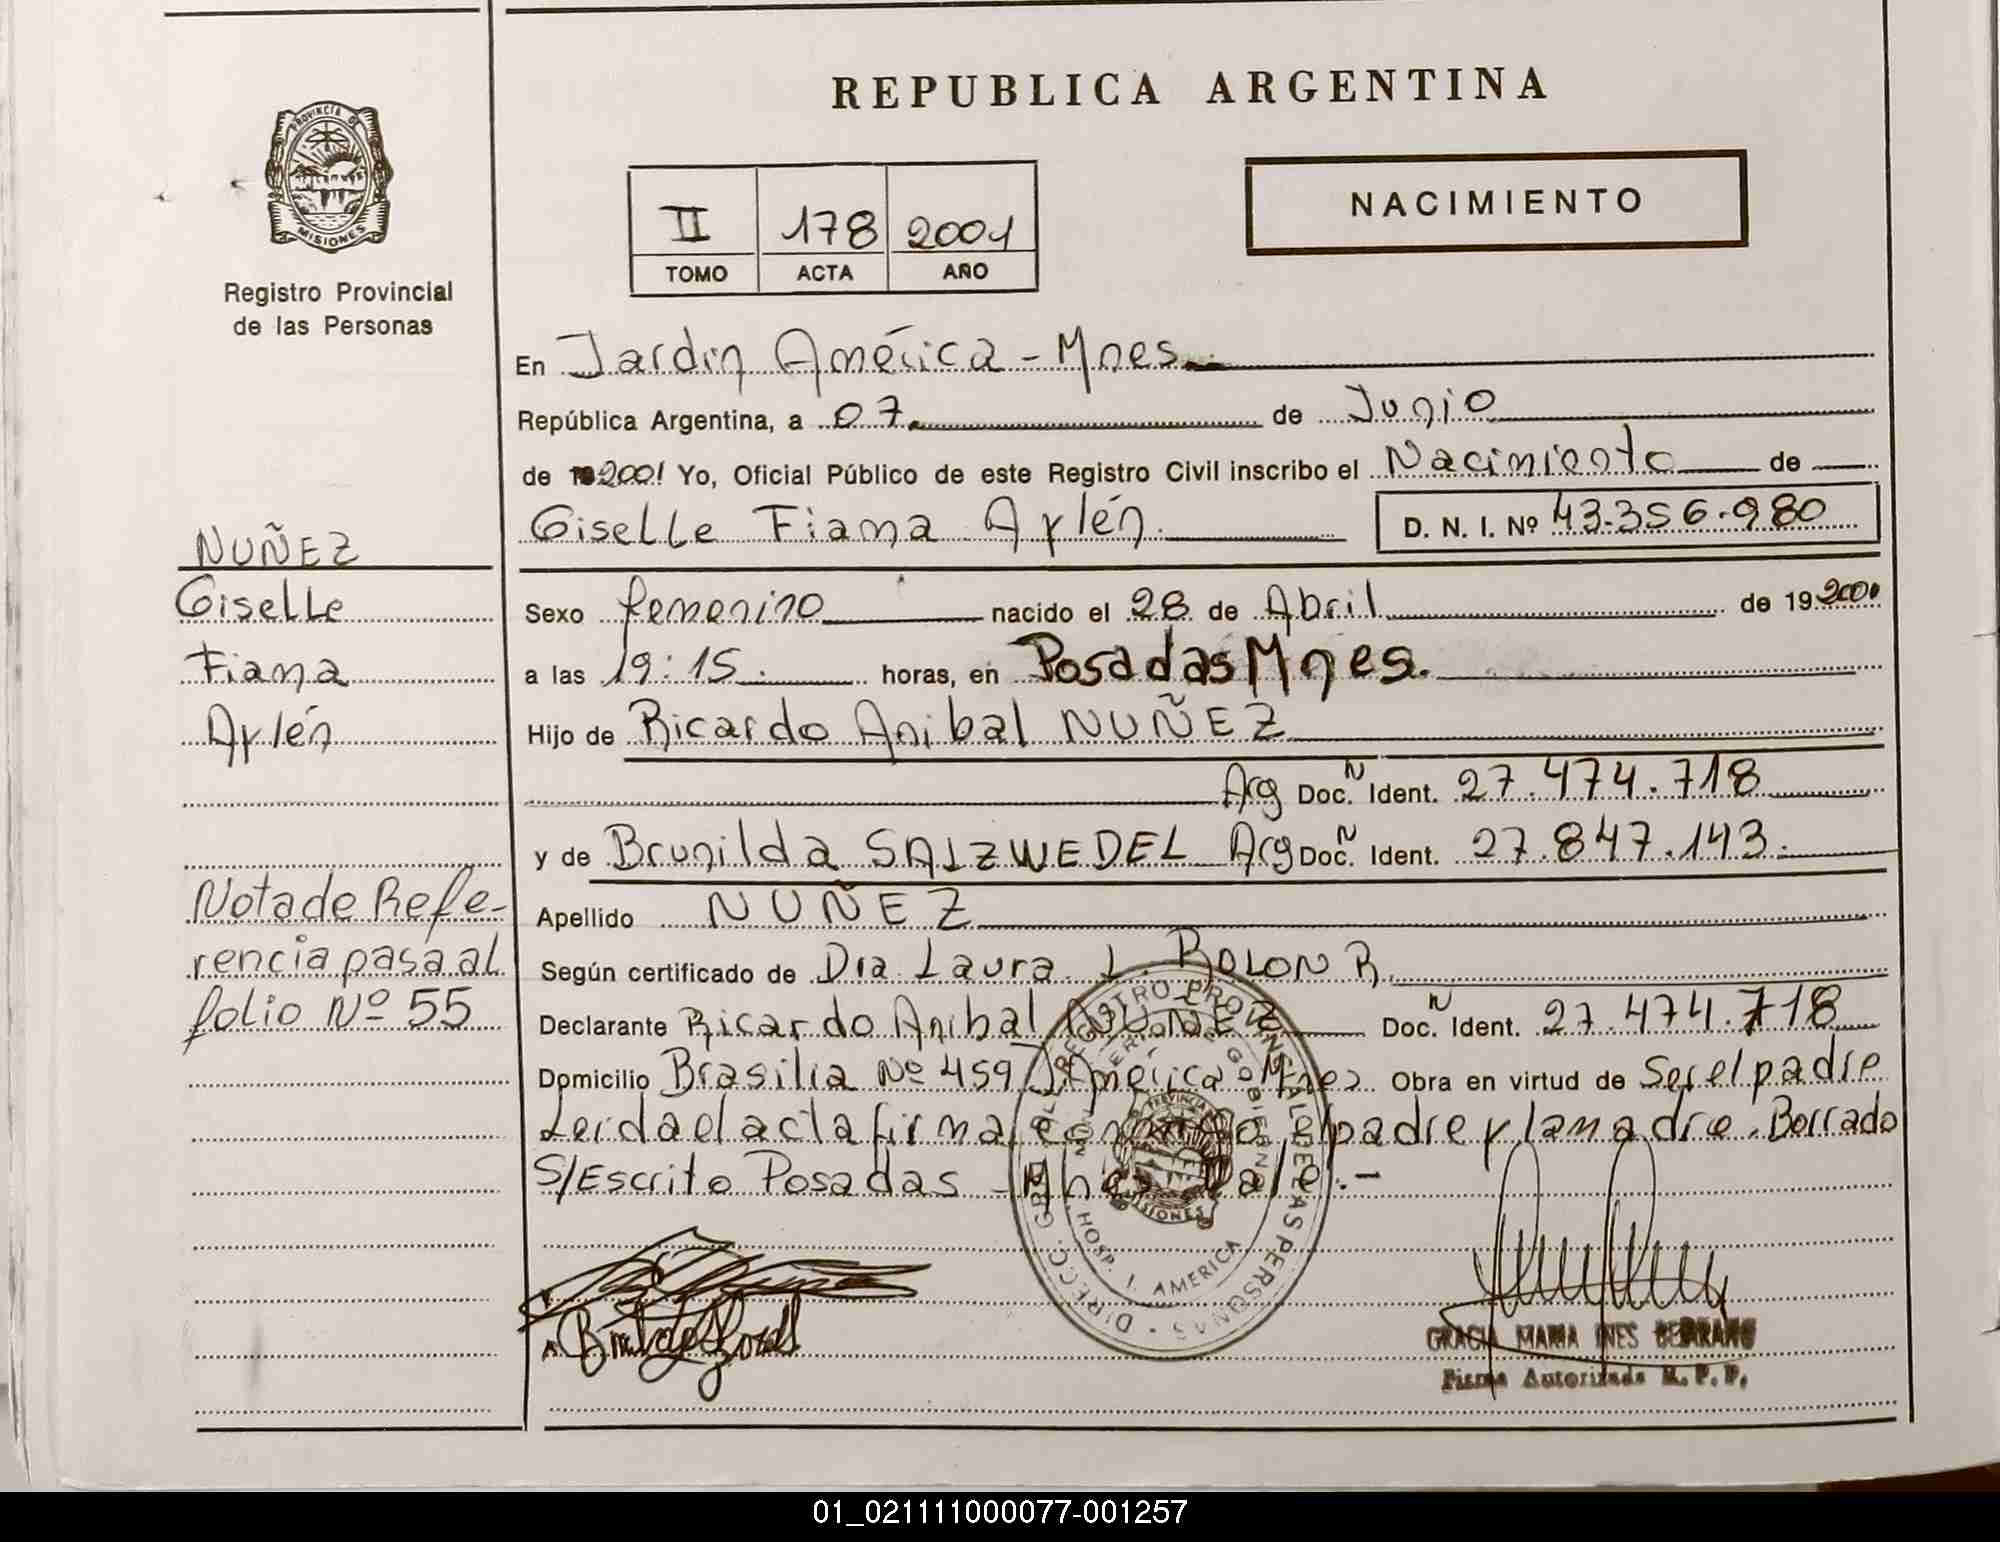 REPUBLICA ARGENTINA
PROVINCIA DE
MISIONES
Registro Provincial
de las Personas
NACIMIENTO
II 178 2001
TOMO ACTA AÑO
En Jardin América - Mnes.
República Argentina, a 07. de Junio
de 192001 Yo, Oficial Público de este Registro Civil inscribo el Nacimiento de
Giselle Fiama Aylén. D. N. I. Nº 43.356.980
Sexo femenino nacido el 28 de Abril de 19 2001
a las 19:15. horas, en Posadas Mnes.
Hijo de Ricardo Anibal NUÑEZ
Arg Doc. N Ident. 27.474.718
y de Brunilda SALZWEDEL Arg Doc. N Ident. 27.847.143.
Apellido NUÑEZ
Según certificado de Dra Laura L. ROLON R.
Declarante Ricardo Anibal NUÑEZ Doc. N Ident. 27.474.718
Domicilio Brasilia Nº 459 J. América Mnes Obra en virtud de Ser el padre
Leida el acta firma conmigo el padre y la madre. Borrado
S/Escrito Posadas - Mnes Vale.-
NUÑEZ
Giselle
Fiama
Aylén
Nota de Refe-
rencia pasa al
folio Nº 55
DIRECC. GRAL. REGISTRO PROVINCIAL DE LAS PERSONAS
HOSP. J. AMERICA
PROVINCIA DE
MISIONES
GRACIA MARIA INES
Firma Autorizada R. P. P.
01_021111000077-001257